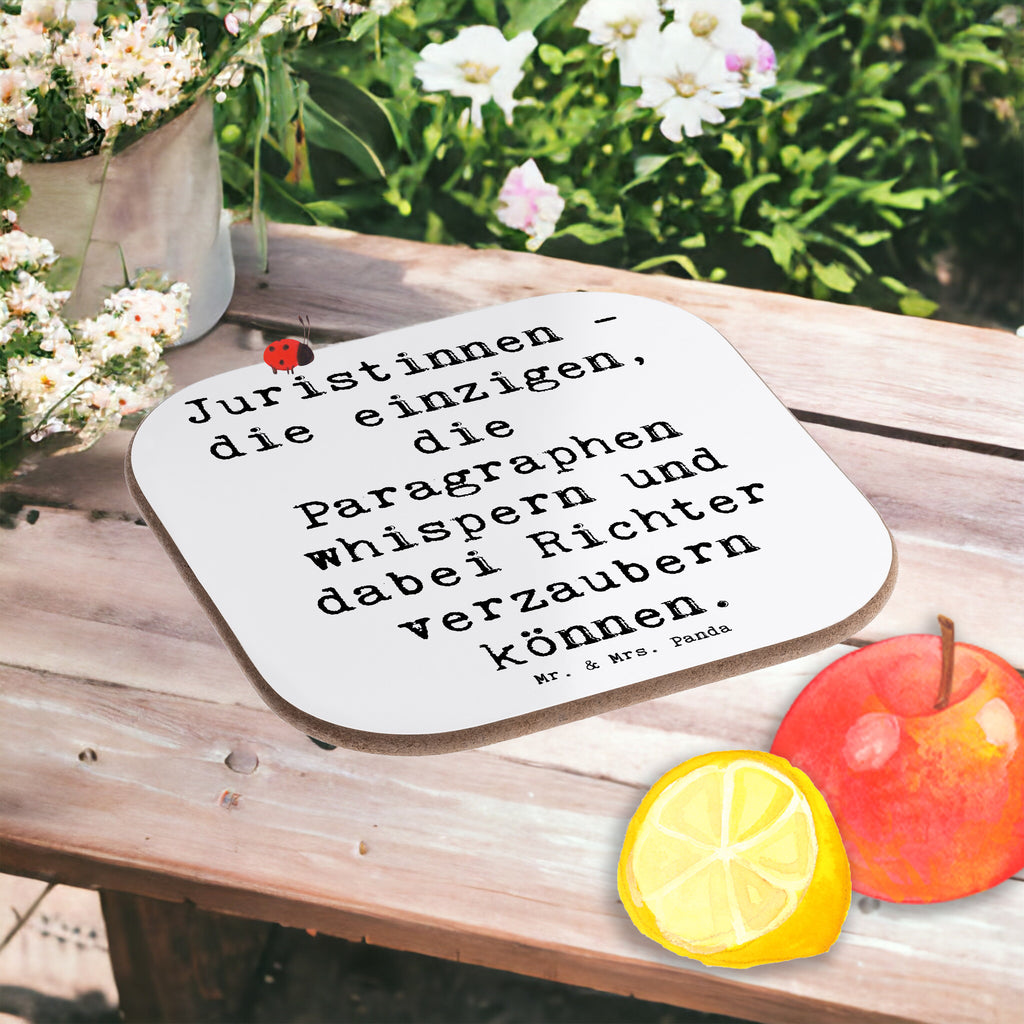 Juristinnen -
die einzigen,
die
Paragraphen
whispern und
dabei Richter
verzaubern
können.
Mr. & Mrs. Panda